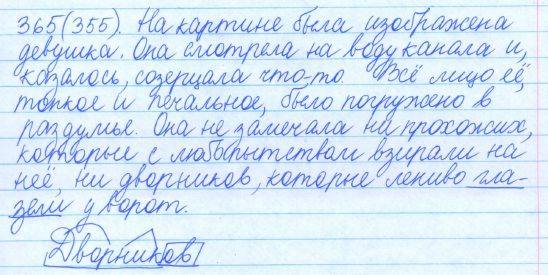 365(355). На картине была изображена
девушка. Она смотрела на воду канала и,
казалось, созерцала что-то Всё лицо её,
тонкое и печальное, было погружено в
раздумье. Она не замечала ни прохожих,
которые с любопытством взирали на
неё, ни дворников, которые лениво гла-
зели у ворот.
Дворников